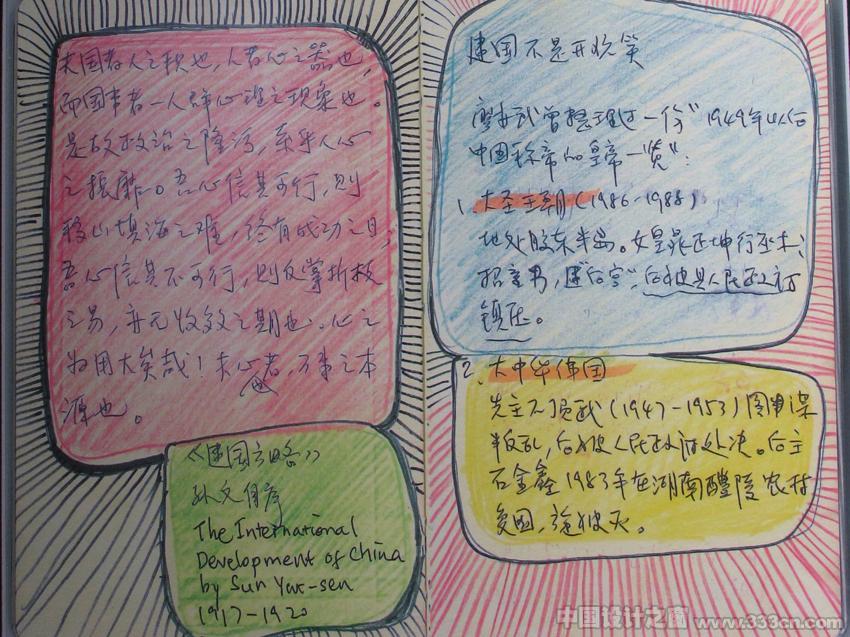 夫国者人之积也，人者心之器也，
而国事者一人群心理之现象也。
是故政治之隆污，系乎人心
之振靡。吾心信其可行，则
移山填海之难，终有成功之日；
吾心信其不可行，则反掌折枝
之易，亦无收效之期也。心之
为用大矣哉！夫心也者，万事之本
源也。
《建国方略》
孙文自序
The International
Development of China
by Sun Yat-sen
1917-1920
建国不是开玩笑
曾整理过一份“1949年以后
中国称帝的皇帝一览”：
1、大圣王朝（1986-1988）
地处胶东半岛。女皇晁正坤行巫术、
招童男，建“后宫”，后被县人民政府
镇压。
2、大中华佛国
先主石顶武（1947-1953）图谋
叛乱，后被人民政府处决。后主
石金鑫1983年在湖南醴陵农村
复国，旋被灭。
中国设计之窗 www.333cn.com